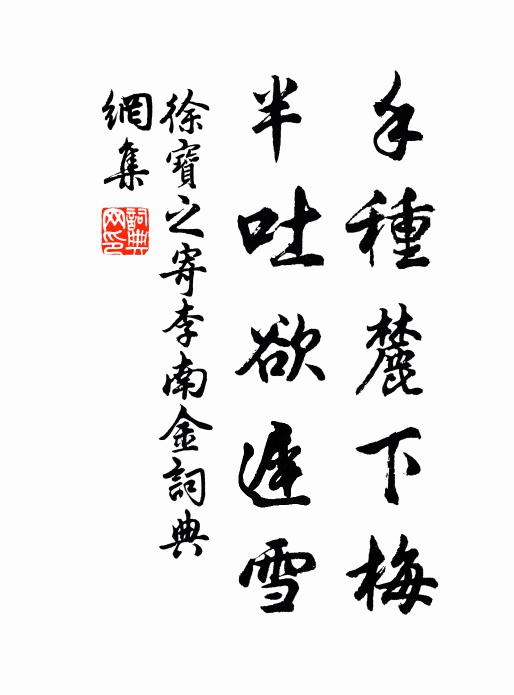 手種麓下梅
半吐欲遲雪
徐寶之寄李南金詞典
網集
詞典
网印